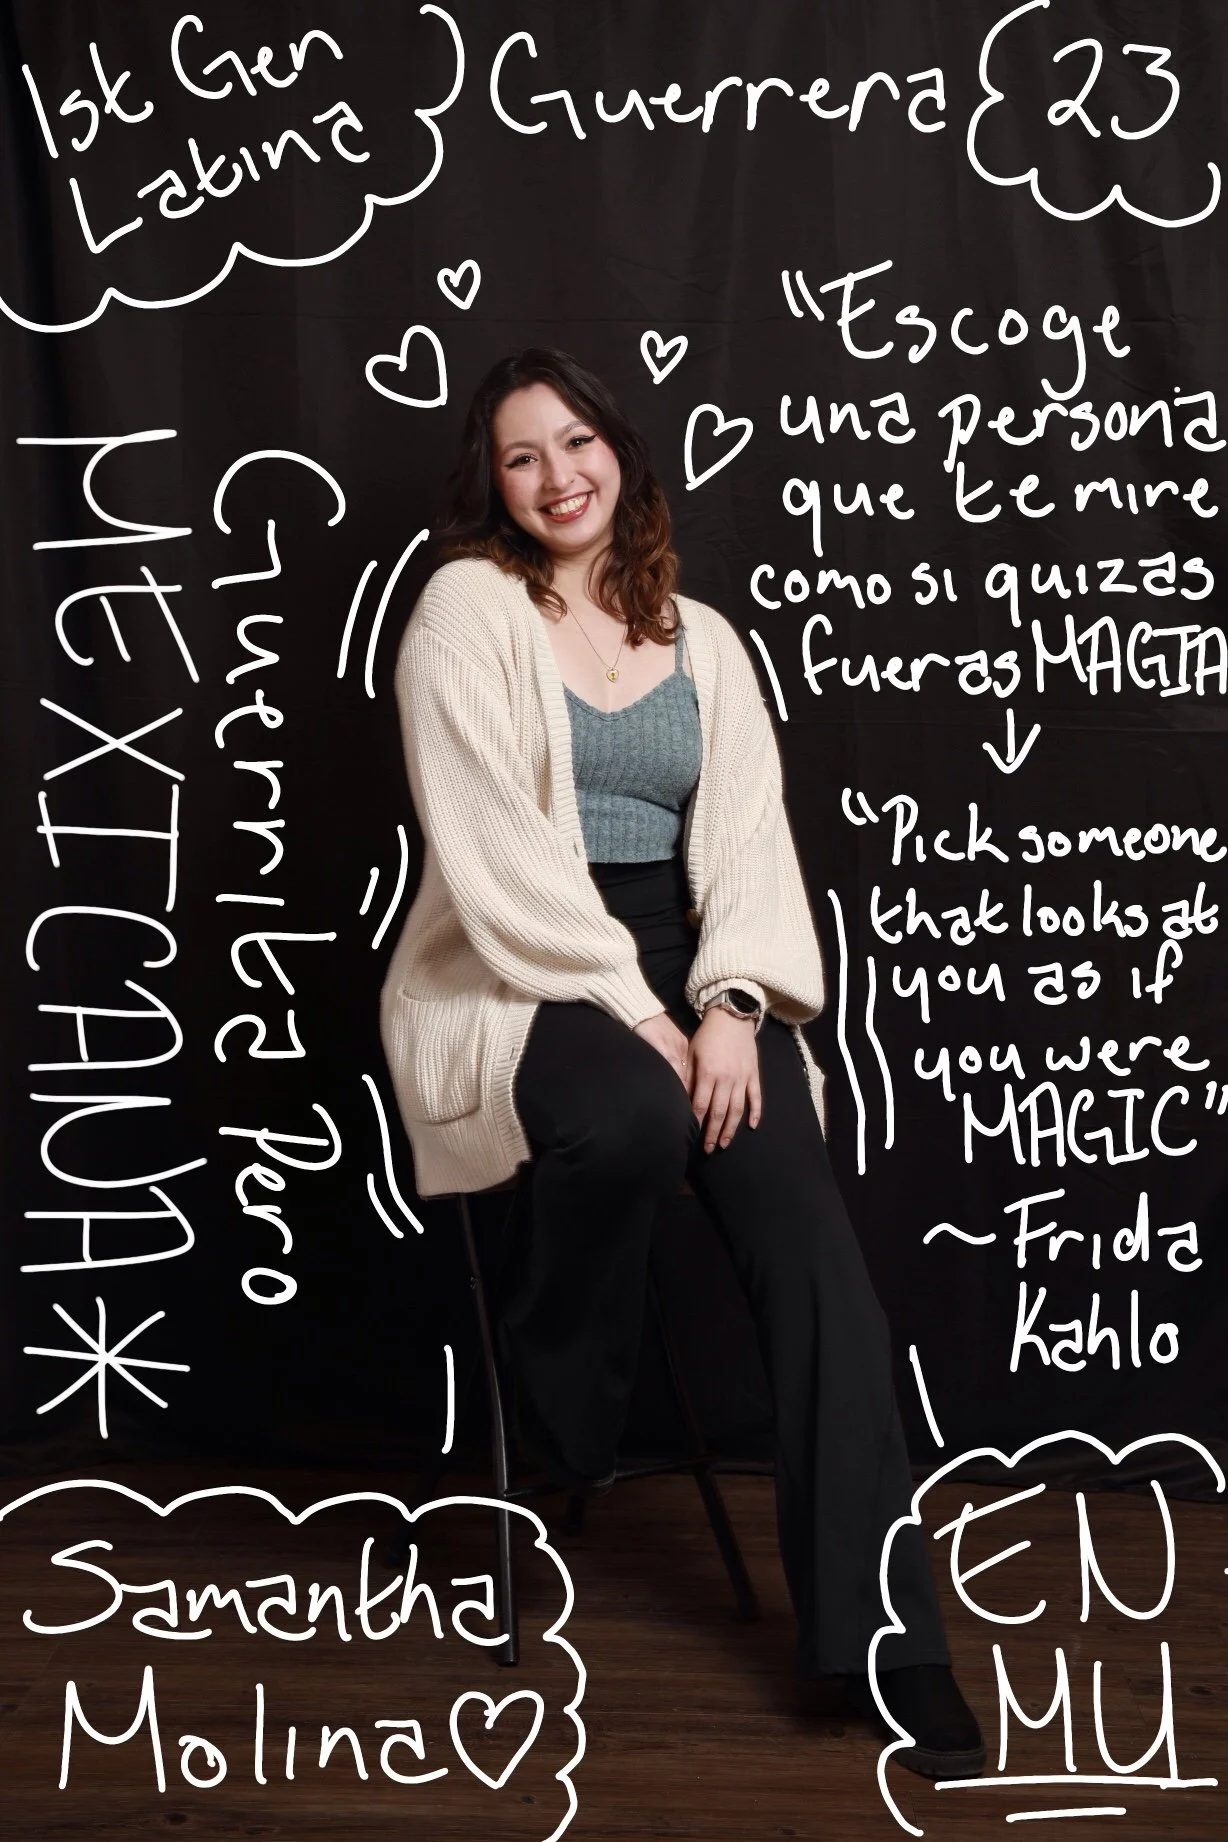 1st Gen
Latina
Guerrera
23
"Escoge
una persona
que te mire
como si quizas
fueras MAGIA
"Pick someone
that looks at
you as if
you were
MAGIC"
~Frida
Kahlo
MEXICANA*
Guerrita Pero
Samantha
Molina
EN
MU